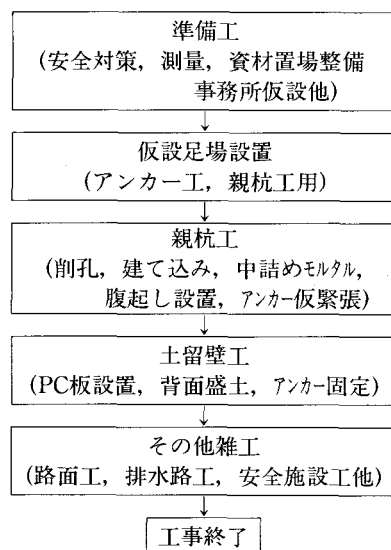 準備工
(安全対策, 測量, 資材置場整備
事務所仮設他)
仮設足場設置
(アンカー工, 親杭工用)
親杭工
(削孔, 建て込み, 中詰めモルタル,
腹起し設置, アンカー仮緊張)
土留壁工
(PC板設置, 背面盛土, アンカー固定)
その他雑工
(路面工, 排水路工, 安全施設工他)
工事終了